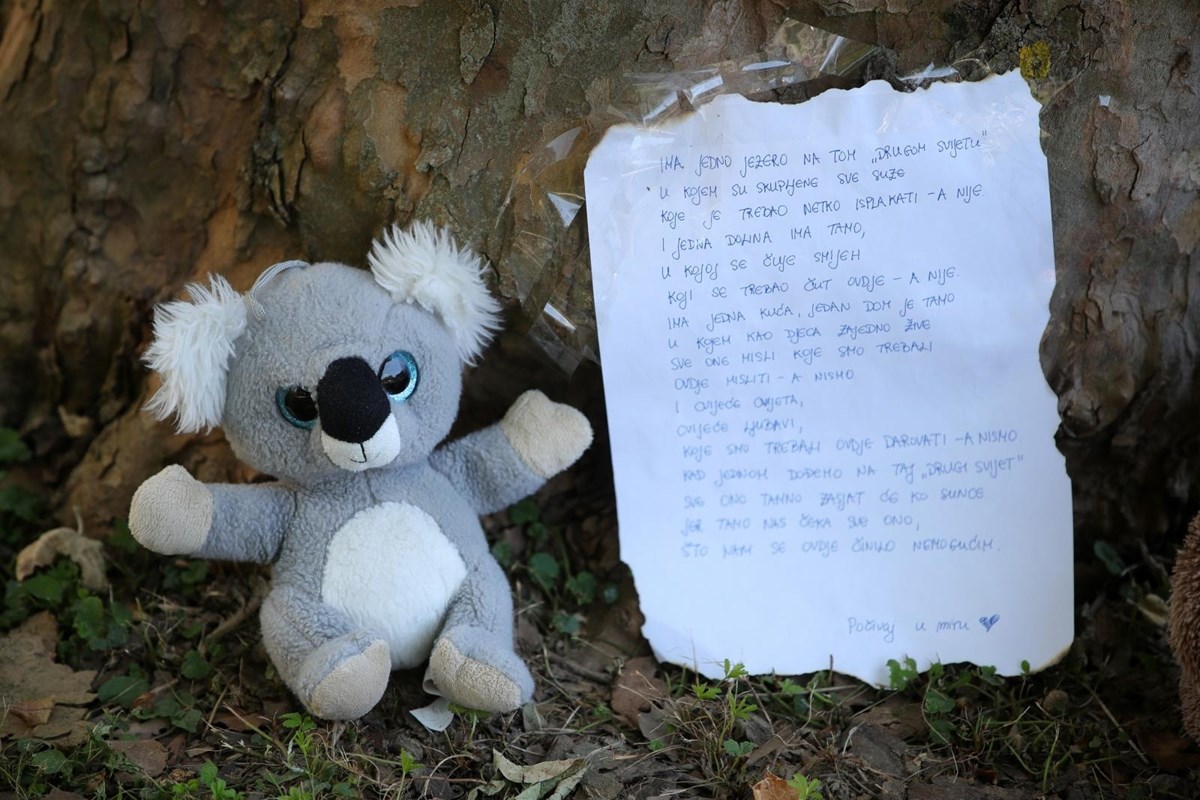 IMA JEDNO JEZERO NA TOM „DRUGOM SVIJETU"
U KOJEM SU SKUPLJENE SVE SUZE
KOJE JE TREBAO NETKO ISPLAKATI - A NIJE.
I JEDNA DOLINA IMA TAMO,
U KOJOJ SE ČUJE SMIJEH
KOJI SE TREBAO ČUT OVDJE - A NIJE.
IMA JEDNA KUĆA, JEDAN DOM JE TAMO
U KOJEM KAO DJECA ZAJEDNO ŽIVE
SVE ONE MISLI KOJE SMO TREBALI
OVDJE MISLITI - A NISMO
I CVIJEĆE CVJETA,
CVIJEĆE LJUBAVI,
KOJE SMO TREBALI OVDJE DAROVATI - A NISMO
KAD JEDNOM DOĐEMO NA TAJ „DRUGI SVIJET"
SVE ONO TAMNO ZASJAT ĆE KO SUNCE
JER TAMO NAS ČEKA SVE ONO,
ŠTO NAM SE OVDJE ČINILO NEMOGUĆIM.
Počivaj u miru